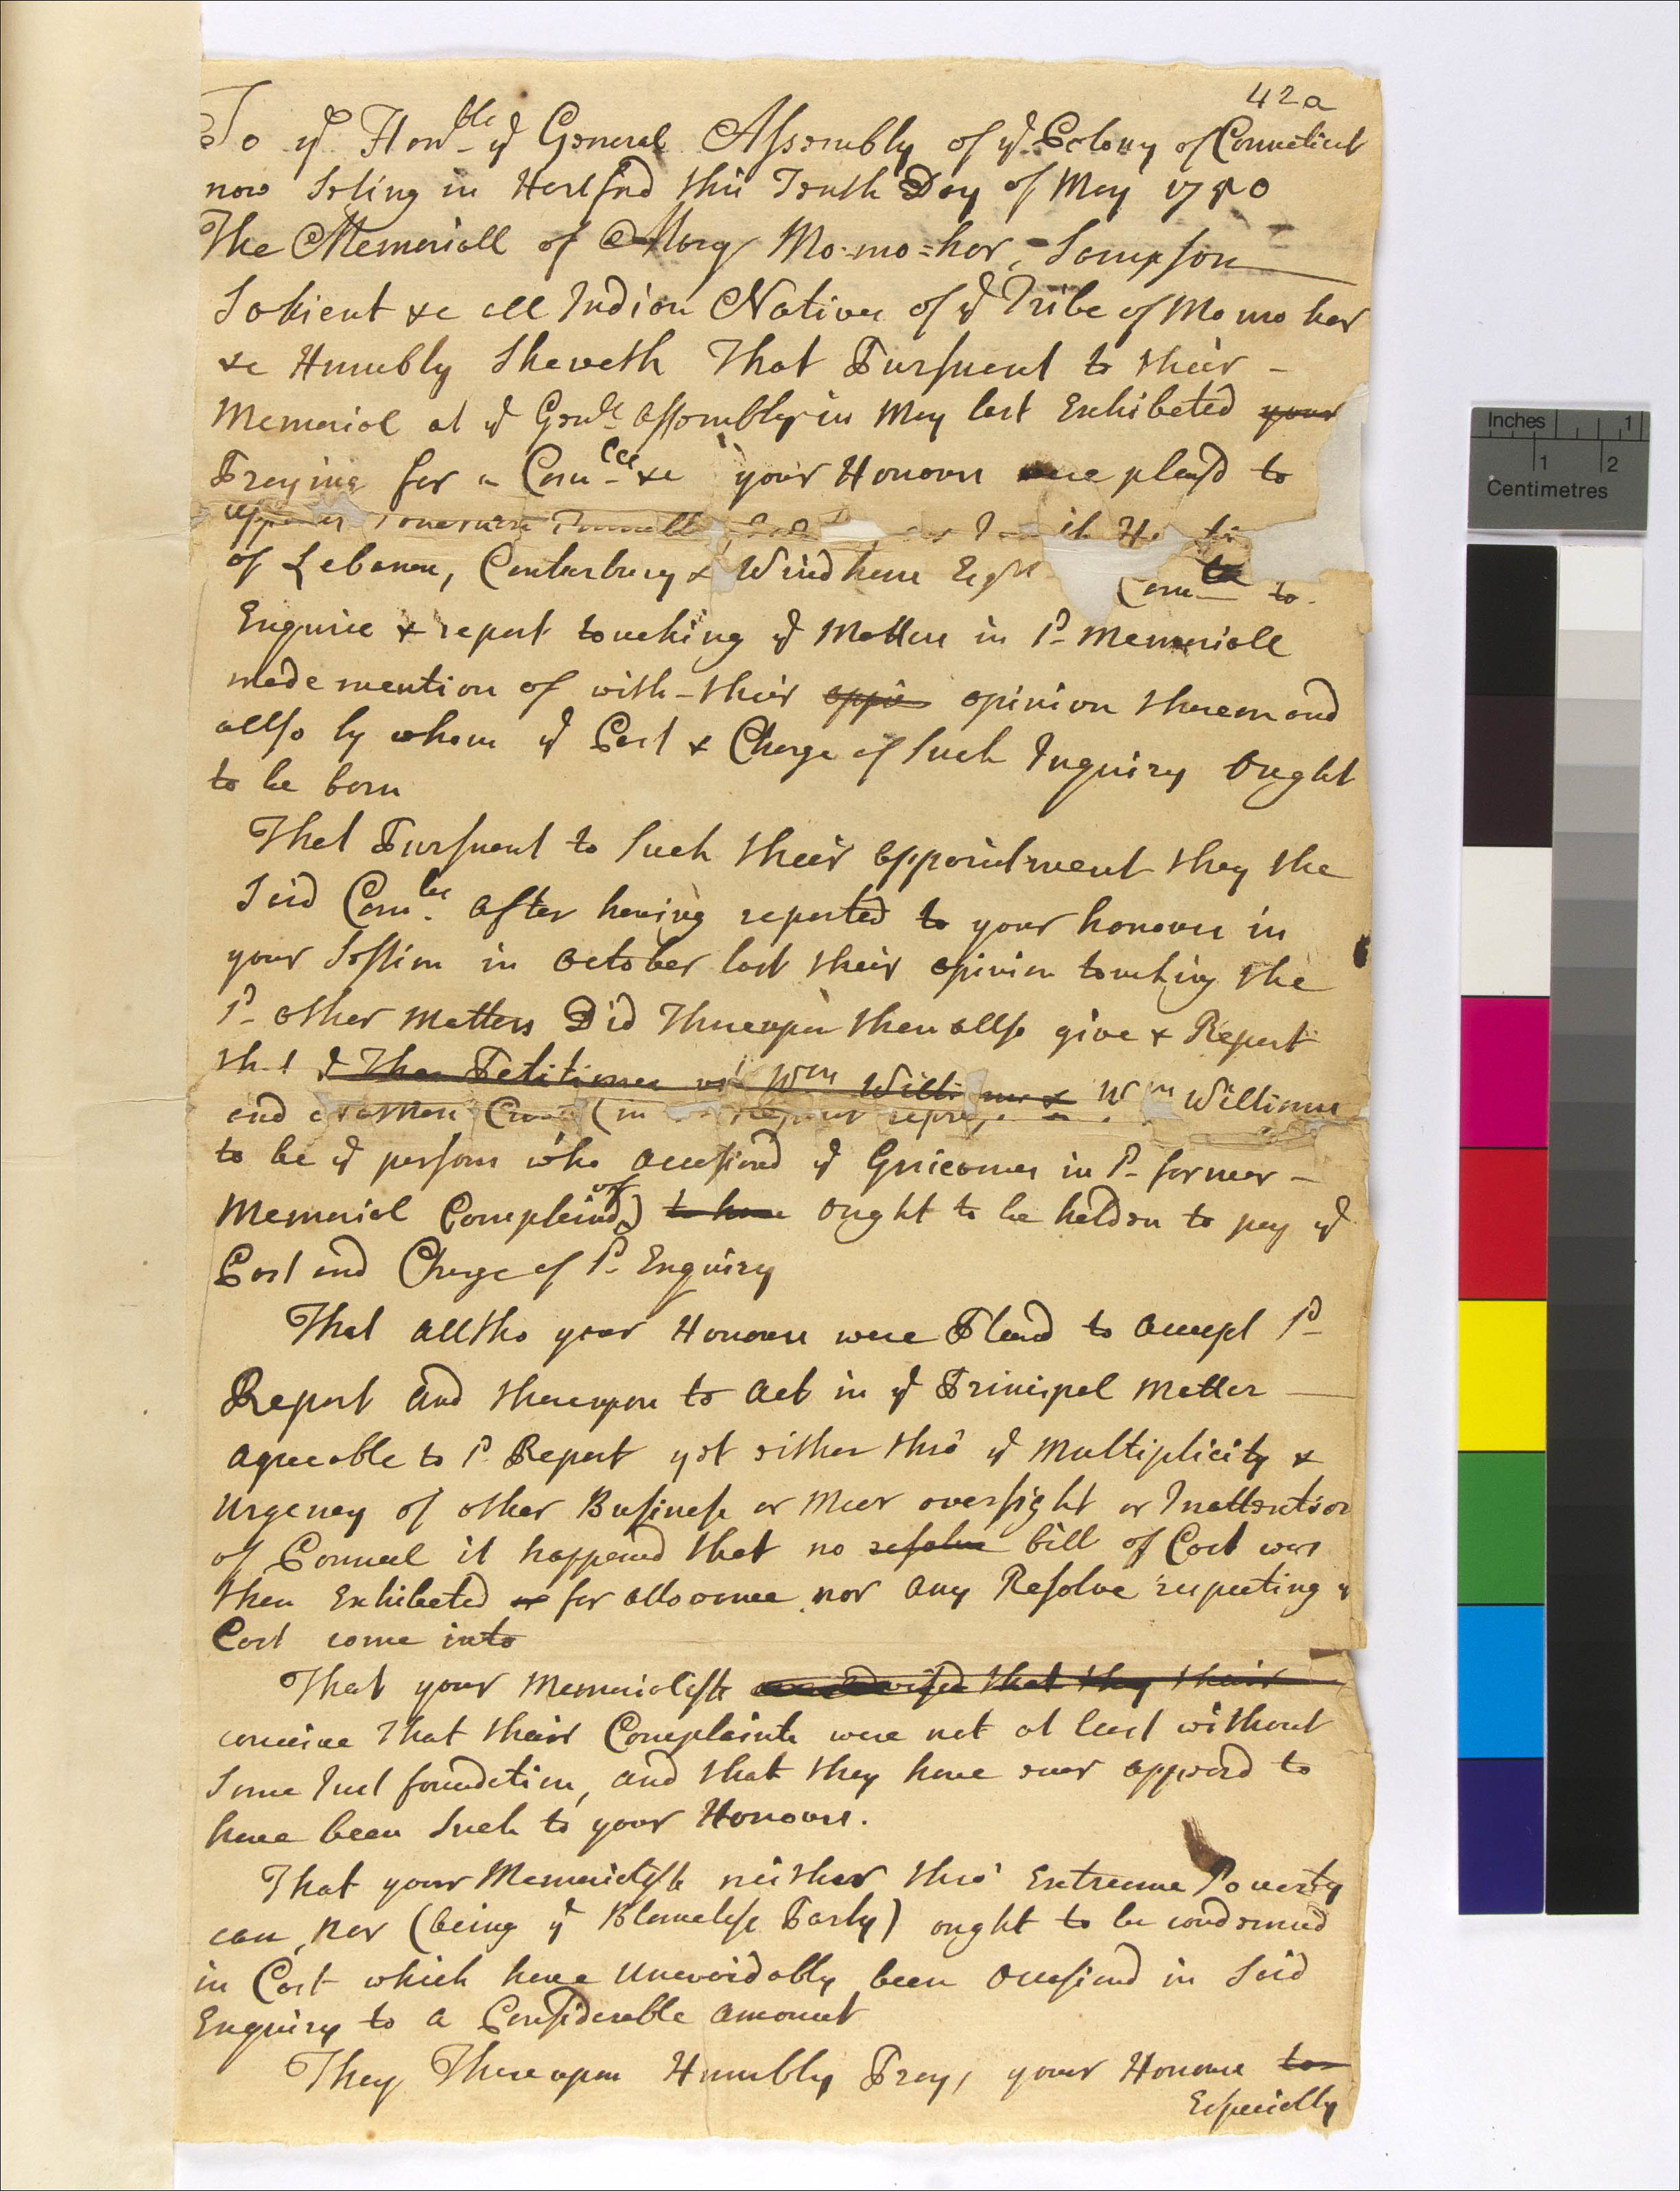 42a
To ye Honble ye General Assembly of ye Colony of Connecticut
now Seting in Hertford this Tenth Day of May 1750
The Memoriall of Mary Mo-mo=har, Sampson
Sobient &c all Indian Natives of ye Tribe of Mo mo har
&c Humbly Sheweth That Pursuent to their -
Memorial at ye Genll Assembly in May last Exhibeted your
Praying for a Comtee &c your Honours were pleasd to
of Lebanon, Canterbury & Windham Esqrs Comtee to
Enquire & report touching ye Matters in sd Memoriall
made mention of with their oppi opinion thereon and
allso by whom ye Cost & Charge of such Inquiry Ought
to be born
That Pursuent to such their appointment they the
Said Comtee after having reported to your honours in
your Session in October last their opinion touching the
sd other Matters Did Thereupon then allso give & Report
that ye Then Petitioners Wm Williams & Wm Williams
and
to be ye persons who occasiond ye Grievances in sd former -
Memorial Complaind of) to have Ought to be holden to pay ye
Cost and Charge of sd Enquiry
That alltho your Honours were Pleasd to accept sd
Report and thereupon to act in ye Principal Matter
agreeable to sd Report yet either thro' ye Multiplicity &
Urgency of other Business or Meer oversight or Inattention
of Councel it happened that no resolve bill of Cost was
then Exhibeted or for allowance nor any Resolve respecting ye
Cost come into
That your Memorialists that they their
conceive That their Complaints were not at least without
Some Just foundation, and that they have ever appeard to
have been Such to your Honours.
That your Memorialists neither thro' Extreeme Poverty
can, nor (being ye Blameless Party) ought to be condemned
in Cost which have Unavoidably been Occasiond in Said
Enquiry to a Considerable amount
They Thereupon Humbly Pray, your Honours to
Especially